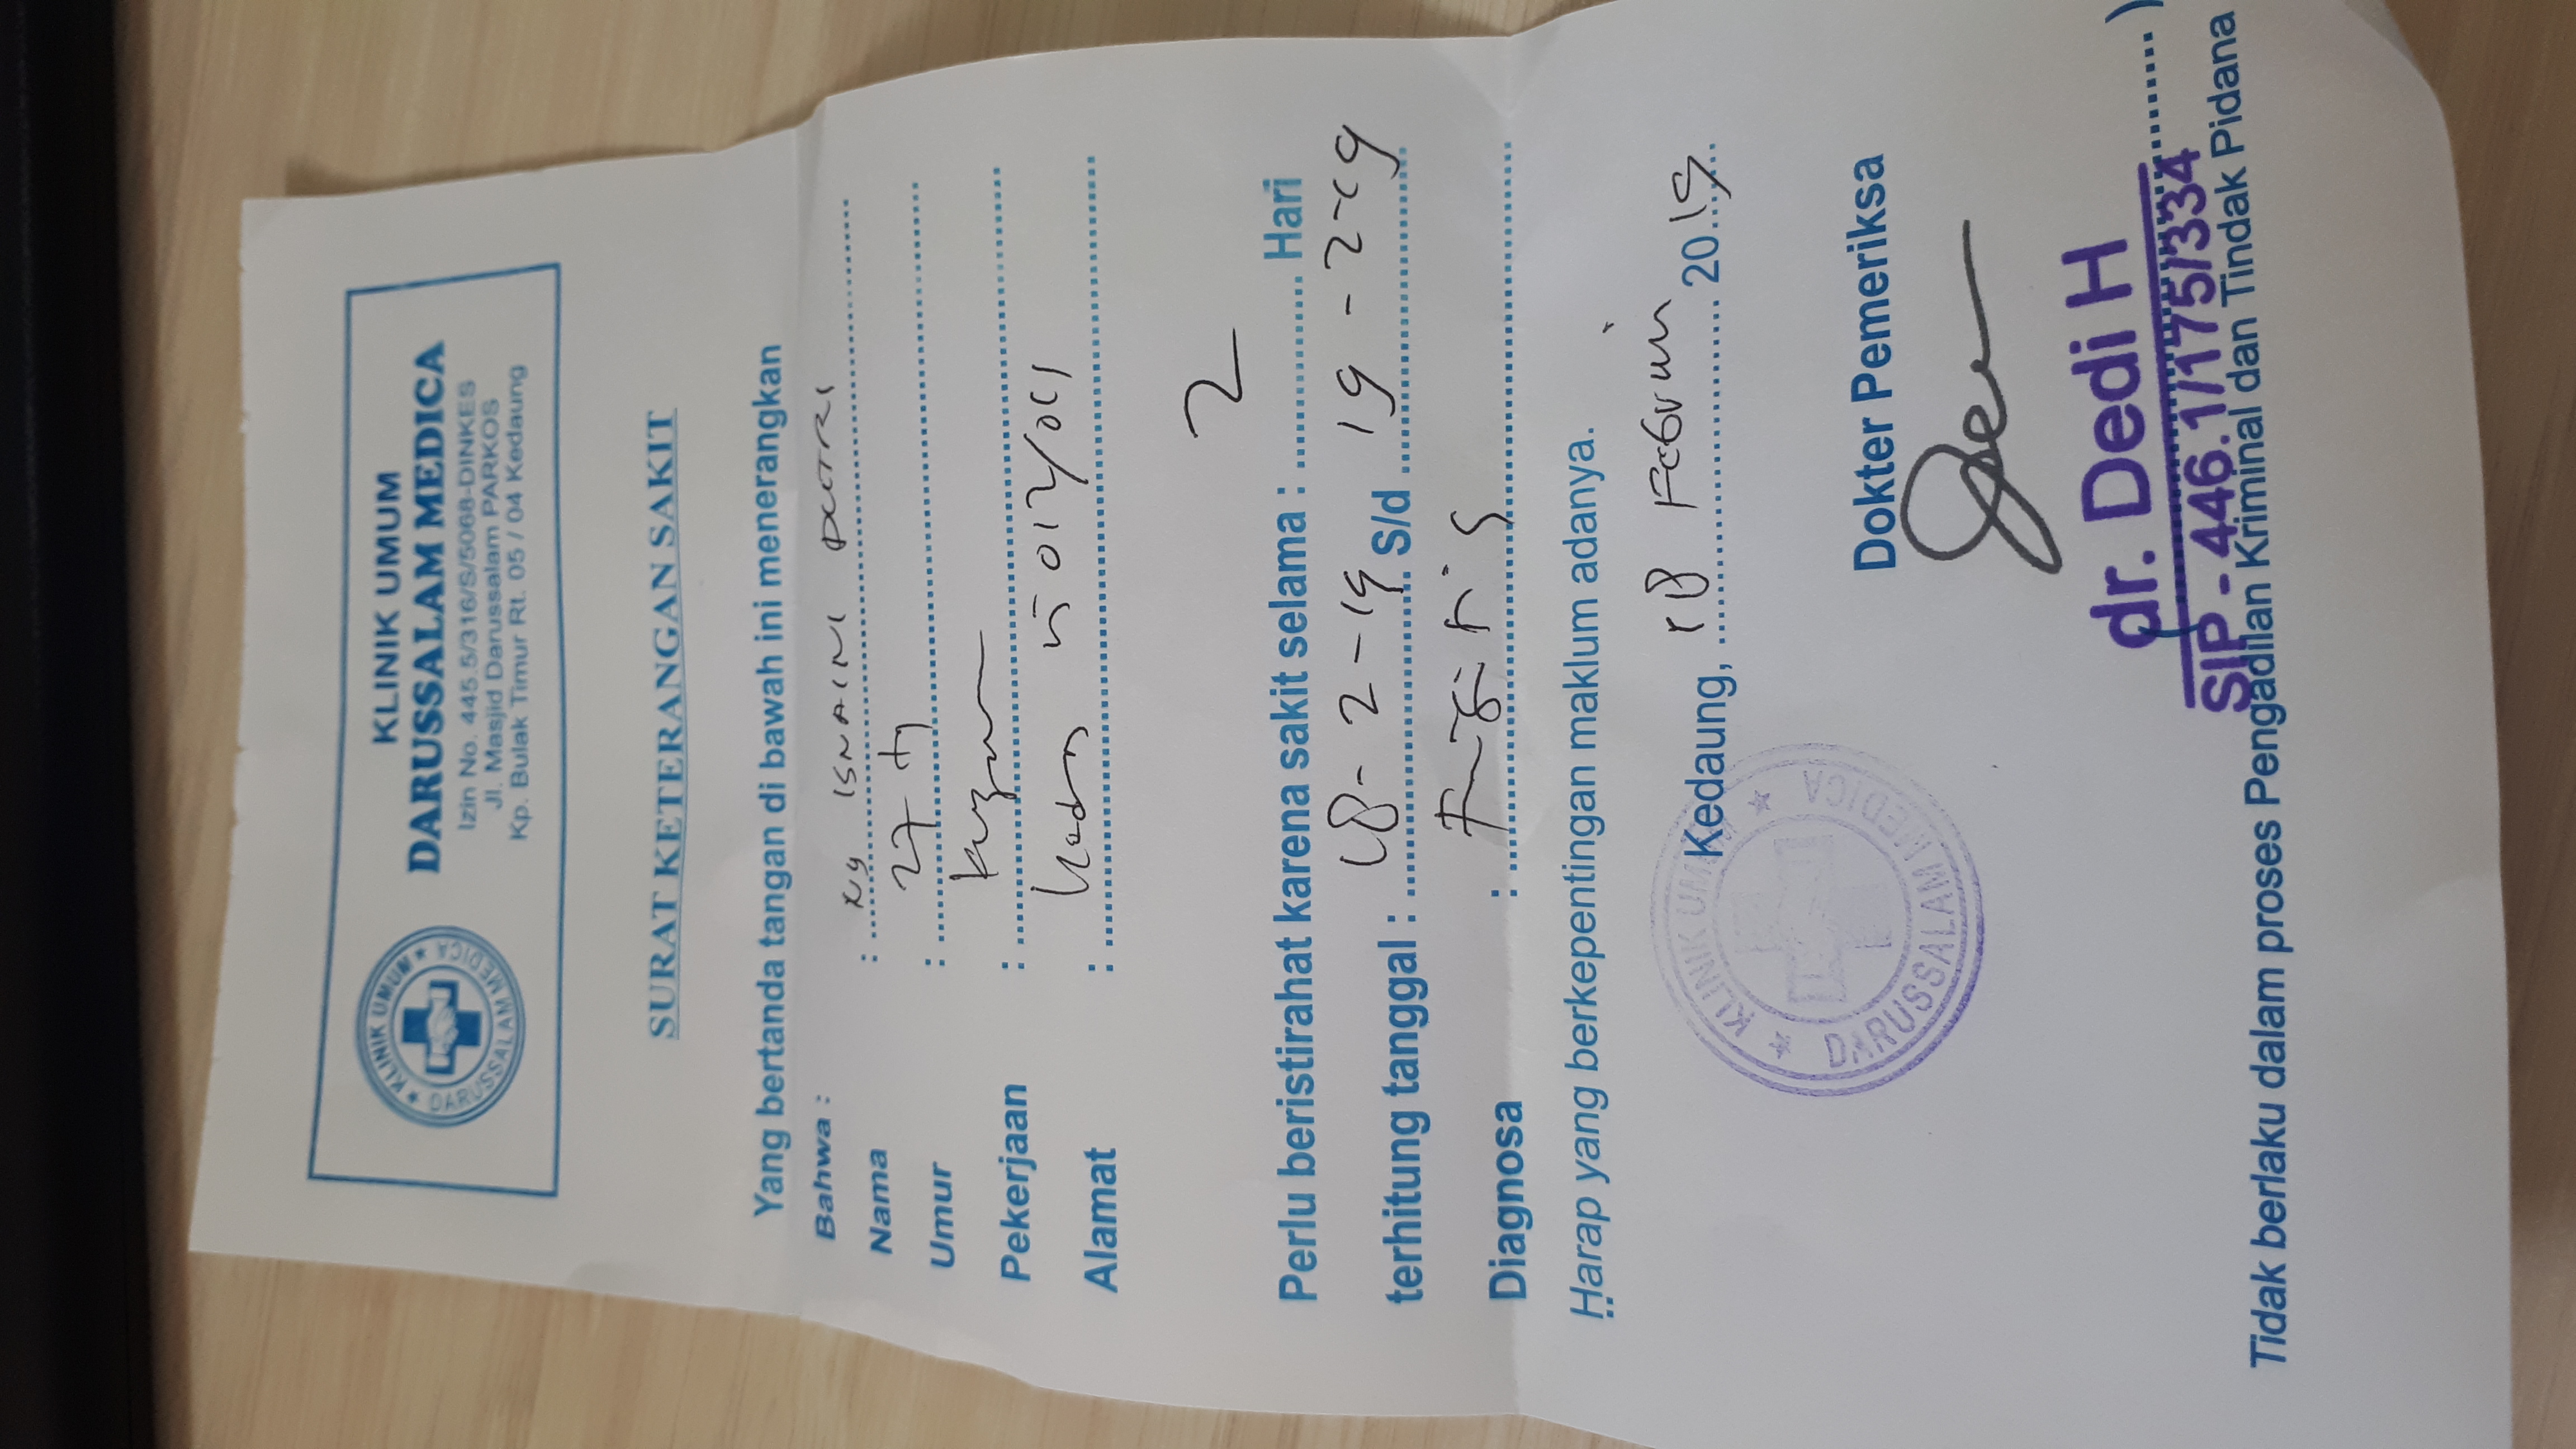 KLINIK UMUM
DARUSSALAM MEDICA
KLINIK UMUM
DARUSSALAM MEDICA
Izin No. 445.5/316/S/5068-DINKES
Jl. Masjid Darussalam PARKOS
Kp. Bulak Timur Rt. 05 / 04 Kedaung
SURAT KETERANGAN SAKIT
Yang bertanda tangan di bawah ini menerangkan
Bahwa :
Nama : Ny ISNAINI PUTRI
Umur : 27 th
Pekerjaan :
Alamat : 012/001
Perlu beristirahat karena sakit selama : 2 Hari
terhitung tanggal : 18-2-19 S/d 19-2-19
Diagnosa :
Harap yang berkepentingan maklum adanya.
Kedaung, 18 Februari 2019
KLINIK UMUM
DARUSSALAM MEDICA
Dokter Pemeriksa
dr. Dedi H
SIP - 446.1/175/334
Tidak berlaku dalam proses Pengadilan Kriminal dan Tindak Pidana